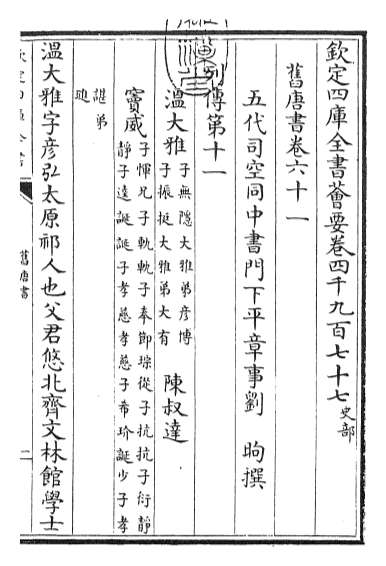 欽定四庫全書薈要卷四千九百七十七史部
舊唐書卷六十一
五代司空同中書門下平章事劉 昫撰
列傳第十一
溫大雅 子無隱大雅弟彥博
子振挺大雅弟大有 陳叔達
竇威 子惲兄子軌軌子奉節琮從子抗抗子衍靜
靜子逵誕誕子孝慈孝慈子希玠誕少子孝
諶弟
璡
溫大雅字彥弘太原祁人也父君悠北齊文林館學士
舊唐書